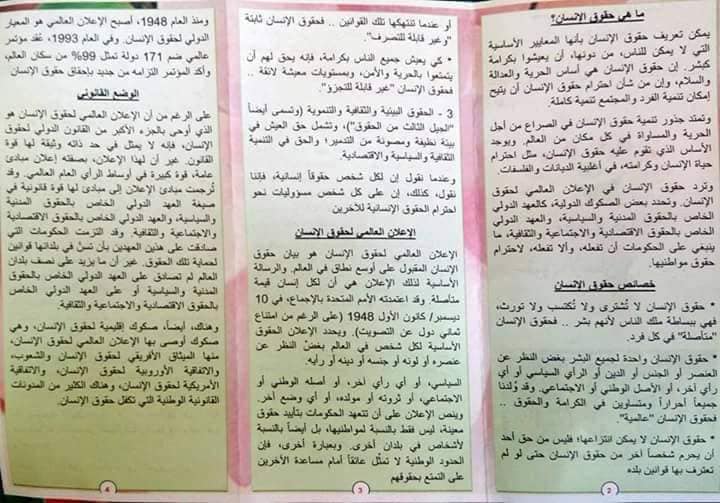 ما هي حقوق الإنسان؟
يمكن تعريف حقوق الإنسان بأنها المعايير الأساسية
التي لا يمكن للناس، من دونها، أن يعيشوا بكرامة
كبشر. إن حقوق الإنسان هي أساس الحرية والعدالة
والسلام، وإن من شأن احترام حقوق الإنسان أن يتيح
إمكان تنمية الفرد والمجتمع تنمية كاملة.
وتمتد جذور تنمية حقوق الإنسان في الصراع من أجل
الحرية والمساواة في كل مكان من العالم. ويوجد
الأساس الذي تقوم عليه حقوق الإنسان، مثل احترام
حياة الإنسان وكرامته، في أغلبية الديانات والفلسفات.
وترد حقوق الإنسان في الإعلان العالمي لحقوق
الإنسان. وتحدد بعض الصكوك الدولية، كالعهد الدولي
الخاص بالحقوق المدنية والسياسية، والعهد الدولي
الخاص بالحقوق الاقتصادية والاجتماعية والثقافية، ما
ينبغي على الحكومات أن تفعله، وألا تفعله، لاحترام
حقوق مواطنيها.
خصائص حقوق الإنسان
* حقوق الإنسان لا تُشترى ولا تُكتسب ولا تورث،
فهي ببساطة ملك الناس لأنهم بشر .. فحقوق الإنسان
"متأصلة" في كل فرد.
* حقوق الإنسان واحدة لجميع البشر بغض النظر عن
العنصر أو الجنس أو الدين أو الرأي السياسي أو أي
رأي آخر، أو الأصل الوطني أو الاجتماعي. وقد وُلدنا
جميعاً أحراراً ومتساوين في الكرامة والحقوق ..
فحقوق الإنسان "عالمية".
* حقوق الإنسان لا يمكن انتزاعها؛ فليس من حق أحد
أن يحرم شخصاً آخر من حقوق الإنسان حتى لو لم
تعترف بها قوانين بلده
2
أو عندما تنتهكها تلك القوانين .. فحقوق الإنسان ثابتة
"وغير قابلة للتصرف".
* كي يعيش جميع الناس بكرامة، فإنه يحق لهم أن
يتمتعوا بالحرية والأمن، وبمستويات معيشة لائقة ..
فحقوق الإنسان "غير قابلة للتجزؤ".
3 - الحقوق البيئية والثقافية والتنموية (وتسمى أيضاً
"الجيل الثالث من الحقوق")، وتشمل حق العيش في
بيئة نظيفة ومصونة من التدمير؛ والحق في التنمية
الثقافية والسياسية والاقتصادية.
وعندما نقول إن لكل شخص حقوقاً إنسانية، فإننا
نقول، كذلك، إن على كل شخص مسؤوليات نحو
احترام الحقوق الإنسانية للآخرين.
الإعلان العالمي لحقوق الإنسان
الإعلان العالمي لحقوق الإنسان هو بيان حقوق
الإنسان المقبول على أوسع نطاق في العالم. والرسالة
الأساسية لذلك الإعلان هي أن لكل إنسان قيمة
متأصلة. وقد اعتمدته الأمم المتحدة بالإجماع، في 10
ديسمبر/ كانون الأول 1948 (على الرغم من امتناع
ثماني دول عن التصويت). ويحدد الإعلان الحقوق
الأساسية لكل شخص في العالم بغضّ النظر عن
عنصره أو لونه أو جنسه أو دينه أو رأيه.
السياسي، أو أي رأي آخر، أو أصله الوطني أو
الاجتماعي، أو ثروته أو مولده، أو أي وضع آخر.
وينص الإعلان على أن تتعهد الحكومات بتأييد حقوق
معينة، ليس فقط بالنسبة لمواطنيها، بل أيضاً بالنسبة
لأشخاص في بلدان أخرى. وبعبارة أخرى، فإن
الحدود الوطنية لا تمثّل عائقاً أمام مساعدة الآخرين
على التمتع بحقوقهم
3
ومنذ العام 1948، أصبح الإعلان العالمي هو المعيار
الدولي لحقوق الإنسان. وفي العام 1993، عُقد مؤتمر
عالمي ضم 171 دولة تمثل 99% من سكان العالم،
وأكد المؤتمر التزامه من جديد بإحقاق حقوق الإنسان
الوضع القانوني
على الرغم من أن الإعلان العالمي لحقوق الإنسان هو
الذي أوحى بالجزء الأكبر من القانون الدولي لحقوق
الإنسان، فإنه لا يمثل في حد ذاته وثيقة لها قوة
القانون. غير أن لهذا الإعلان، بصفته إعلان مبادئ
عامة، قوة كبيرة في أوساط الرأي العام العالمي. وقد
تُرجمت مبادئ الإعلان إلى مبادئ لها قوة قانونية في
صيغة العهد الدولي الخاص بالحقوق المدنية
والسياسية، والعهد الدولي الخاص بالحقوق الاقتصادية
والاجتماعية والثقافية. وقد التزمت الحكومات التي
صادقت على هذين العهدين بأن تسنّ في بلدانها قوانين
لحماية تلك الحقوق. غير أن ما يزيد على نصف بلدان
العالم لم تصادق على العهد الدولي الخاص بالحقوق
المدنية والسياسية أو على العهد الدولي الخاص
بالحقوق الاقتصادية والاجتماعية والثقافية.
وهناك، أيضاً، صكوك إقليمية لحقوق الإنسان، وهي
صكوك أوصى بها الإعلان العالمي لحقوق الإنسان،
منها الميثاق الأفريقي لحقوق الإنسان والشعوب،
والاتفاقية الأوروبية لحقوق الإنسان، والاتفاقية
الأمريكية لحقوق الإنسان، وهناك الكثير من المدونات
القانونية الوطنية التي تكفل حقوق الإنسان.
4